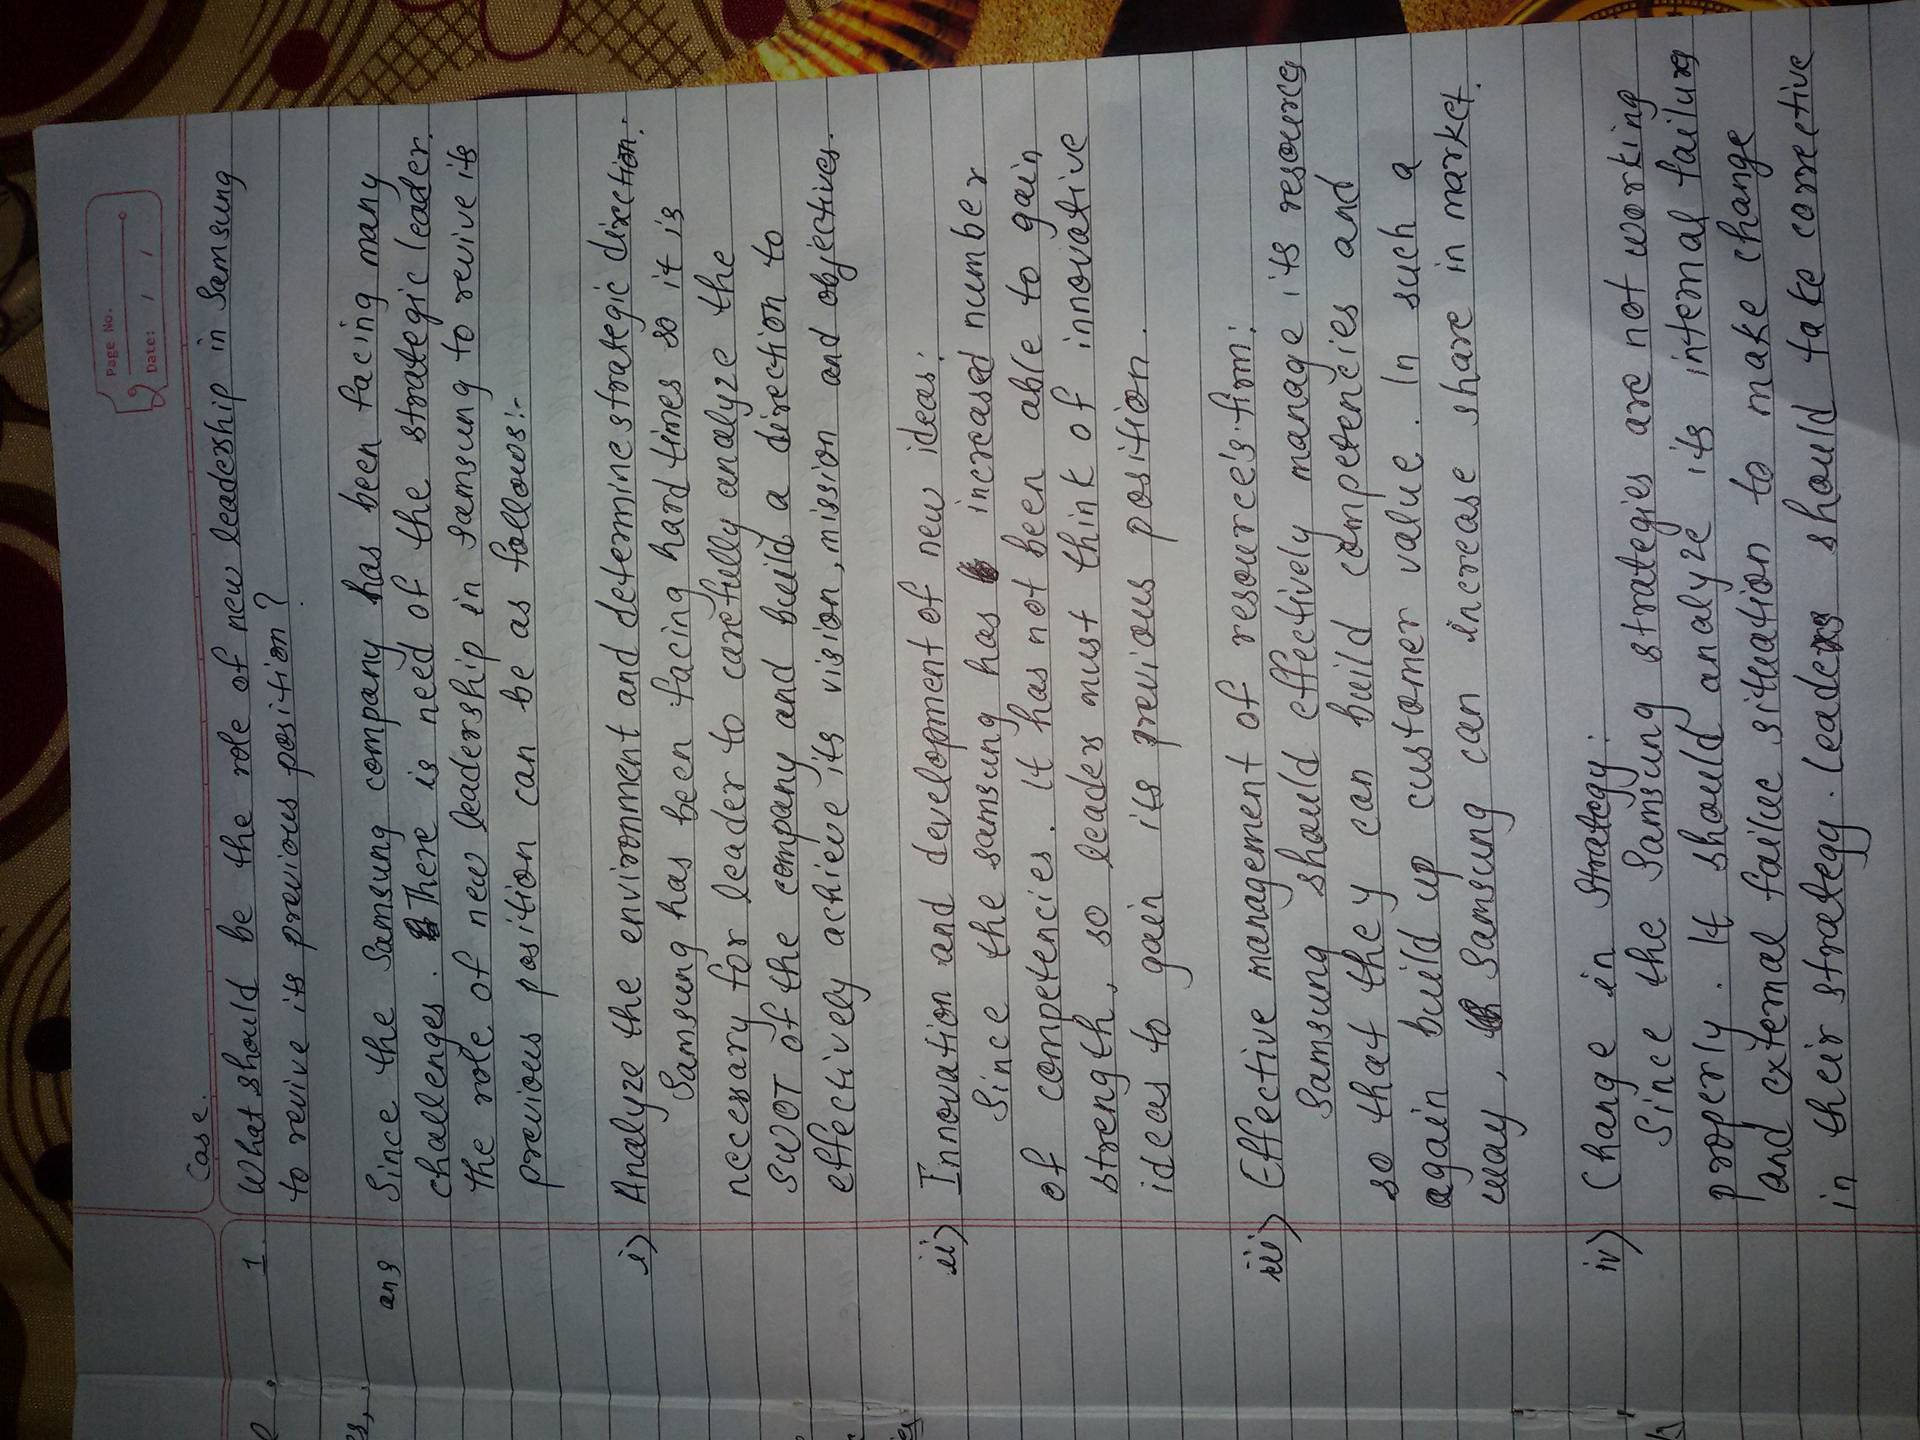 Page No.
Date: / /
Case.
1. What should be the role of new leadership in Samsung
to revive its previous position?
ans Since the Samsung company has been facing many
challenges. There is need of the strategic leader.
the role of new leadership in Samsung to revive its
previous position can be as follows:-
i) Analyze the environment and determine strategic direction:
Samsung has been facing hard times so it is
necessary for leader to carefully analyze the
SWOT of the company and build a direction to
effectively achieve its vision, mission and objectives.
ii) Innovation and development of new ideas:
Since the samsung has increased number
of competencies. It has not been able to gain
strength, so leaders must think of innovative
ideas to gain its previous position.
iii) Effective management of resource's firm:
Samsung should effectively manage its resources
so that they can build competencies and
again build up customer value. In such a
way, Samsung can increase share in market.
iv) Change in Strategy:
Since the Samsung strategies are not working
properly. It should analyze its internal failures
and external failue situation to make change
in their strategy. Leaders should take corrective